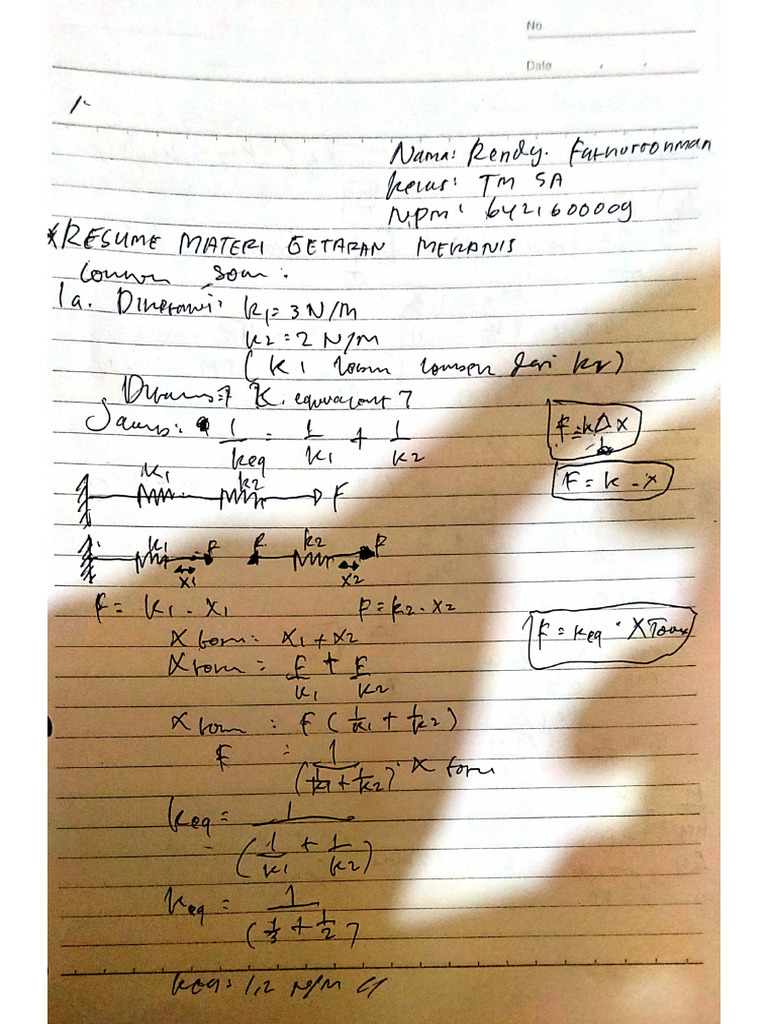 No
Date
1.
Nama: Rendy. Fathurrohman
Kelas: TM 5A
NPM: 6421600009
*RESUME MATERI GETARAN MEKANIS
Contoh Soal:
1a. Diketahui: k1 = 3 N/M
k2 = 2 N/M
(K1 lebih dari k2)
Ditanya = K. equivalent ?
Jawab: 1/keq = 1/k1 + 1/k2
F = k Δ x
F = k . x
K1 k2 F
k1 F F k2 F
x1 x2
F = K1 . x1 F = k2 . x2
X total = x1 + x2
F = keq . X Total
X total = F/k1 + F/k2
X total = F (1/k1 + 1/k2)
F = 1/(1/k1 + 1/k2) . X total
keq = 1/(1/k1 + 1/k2)
keq = 1/(1/3 + 1/2)
keq = 1,2 N/M